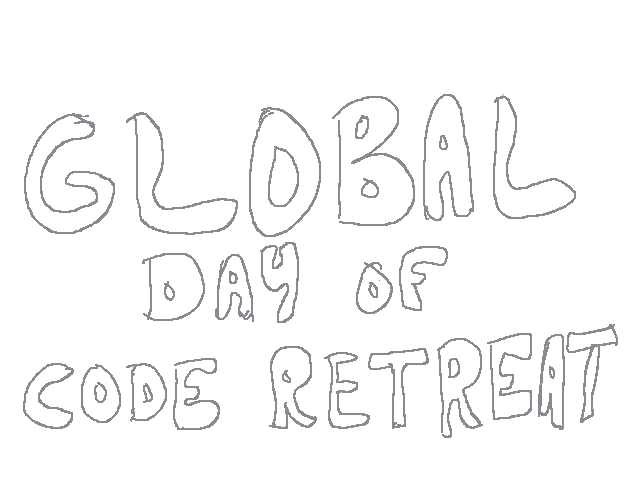 GLOBAL
DAY OF
CODE RETREAT